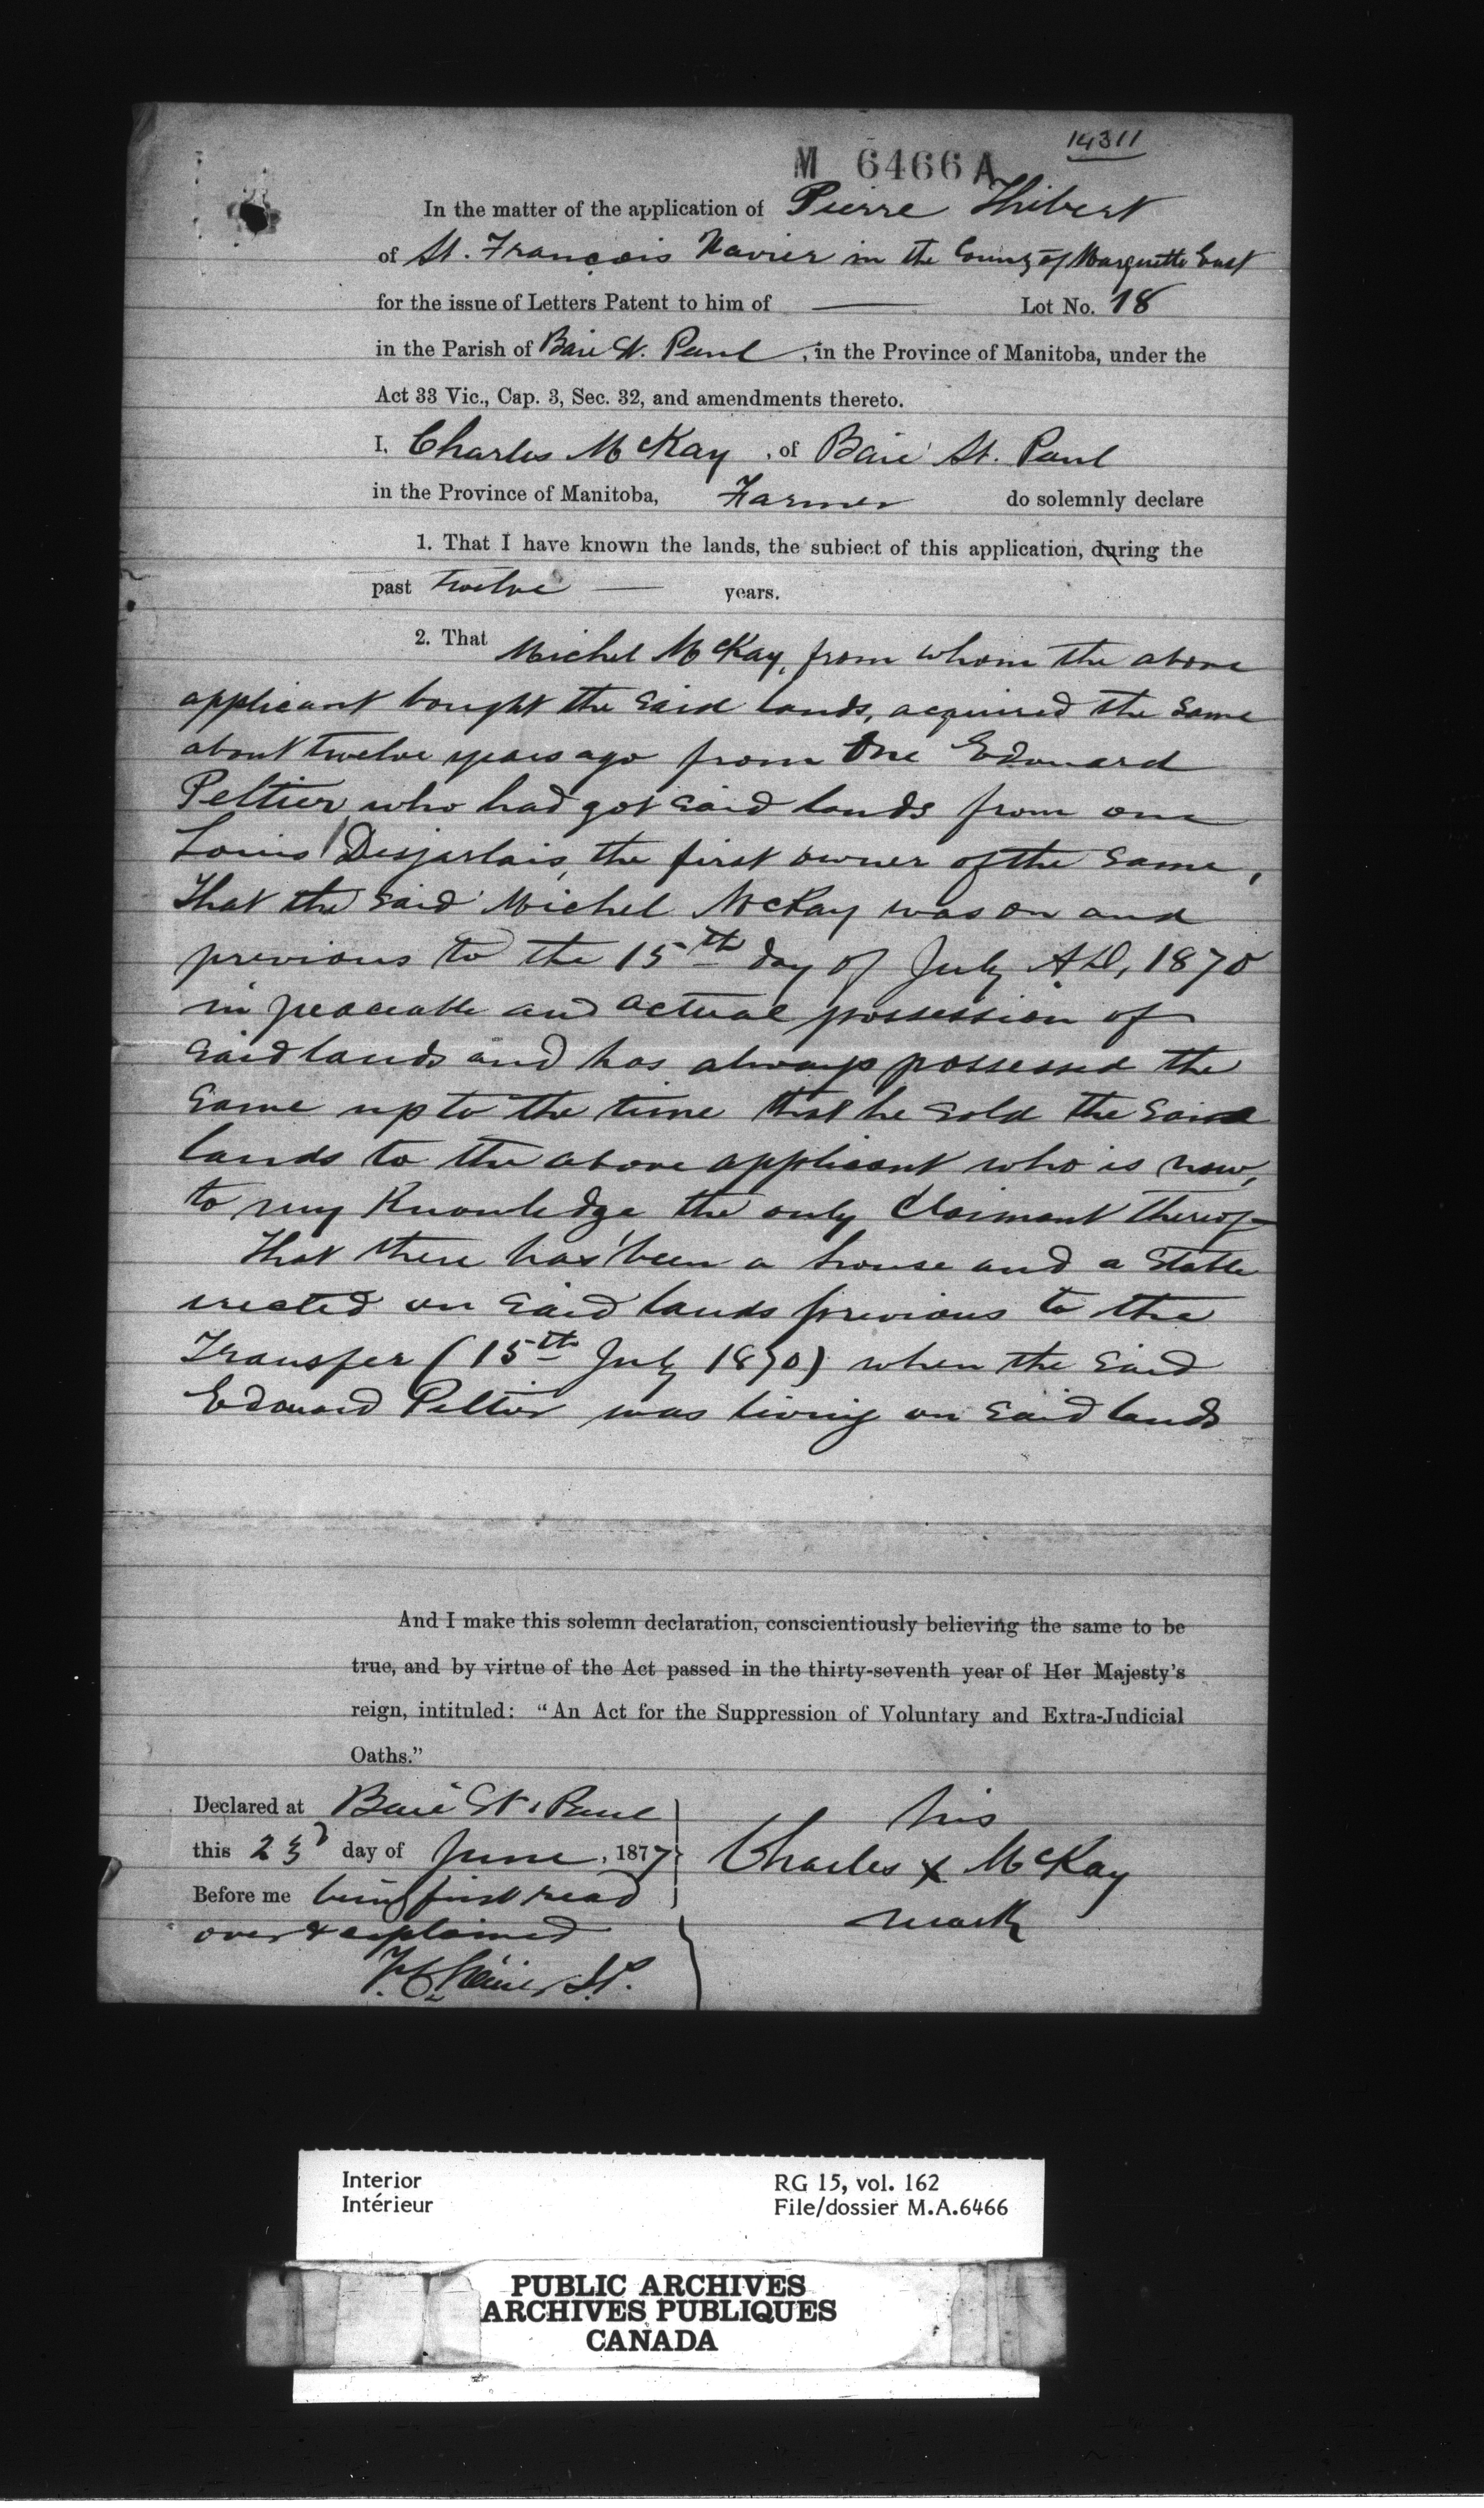 14311
M 6466 A
In the matter of the application of Pierre Thibert
of St. François Xavier in the County of Marquette East
for the issue of Letters Patent to him of — Lot No. 18
in the Parish of Baie St. Paul, in the Province of Manitoba, under the
Act 33 Vic., Cap. 3, Sec. 32, and amendments thereto.
I, Charles McKay, of Baie St. Paul
in the Province of Manitoba, Farmer do solemnly declare
1. That I have known the lands, the subject of this application, during the
past twelve — years.
2. That Michel McKay, from whom the above
applicant bought the said lands, acquired the same
about twelve years ago from One Edouard
Peltier who had got said lands from one
Louis Desjarlais, the first owner of the same,
That the said Michel McKay was on and
previous to the 15th day of July A.D, 1870
in peaceable and actual possession of
said lands and has always possessed the
same up to the time that he sold the said
lands to the above applicant who is now,
to my Knowledge the only Claimant thereof
That there has been a house and a Stable
erected on said lands previous to the
Transfer (15th July 1870) when the said
Edouard Peltier was living on said lands
And I make this solemn declaration, conscientiously believing the same to be
true, and by virtue of the Act passed in the thirty-seventh year of Her Majesty's
reign, intituled: "An Act for the Suppression of Voluntary and Extra-Judicial
Oaths."
Declared at Baie St. Paul
this 23d day of June, 1877
Before me being first read
over & explained
J.P.
his
Charles x McKay
mark
Interior
Intérieur
RG 15, vol. 162
File/dossier M.A.6466
PUBLIC ARCHIVES
ARCHIVES PUBLIQUES
CANADA